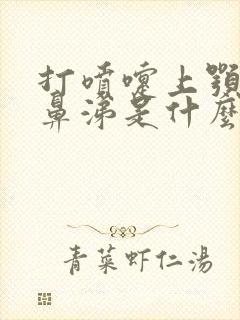 打噴嚏上顎
鼻涕是什麼
青菜虾仁湯